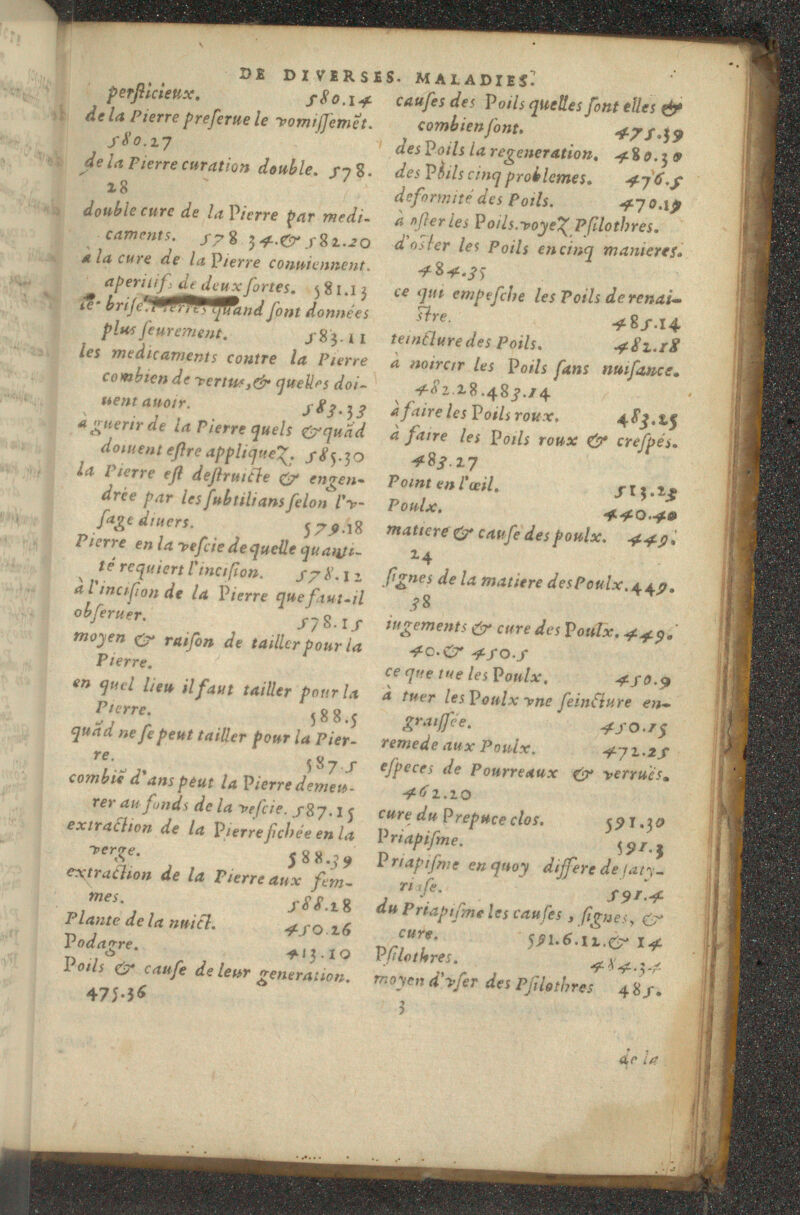 DE DIVERSES. MALADIES.
perſlicieux. 580.14
de la Pierre preſerue le vomiſſemẽt.
580.27
de la Pierre curation double. 578.
28
double cure de la Pierre par medi-
caments. 578 34.& 582.20
a la cure de la Pierre conuiennent.
aperitifs de deux fortes. 581.13
quand ſont données
plus ſeurement. 583.11
les medicaments contre la Pierre
combien de vertus,& quelles doi-
uent auoir. 583.33
a guerir de la Pierre quels & quãd
doiuent eſtre appliquez. 585.30
la Pierre eſt deſtruicte & engen-
drée par les ſubtilians ſelon l'v-
ſage diuers. 579.18
Pierre en la veſcie de quelle quanti-
té requiert l'inciſion. 578.12
a l'inciſion de la Pierre que faut-il
obſeruer. 578.15
moyen & raiſon de tailler pour la
Pierre.
en quel lieu il faut tailler pour la
Pierre. 588.5
quãd ne ſe peut tailler pour la Pier-
re. 587.5
combiẽ d'ans peut la Pierre demeu-
rer au fonds de la veſcie. 587.15
extraction de la Pierre fichée en la
verge. 588.39
extraction de la Pierre aux fem-
mes. 588.28
Plante de la nuict. 450.26
Podagre. 413.10
Poils & cauſe de leur generation.
475.36
cauſes des Poils quelles ſont elles &
combien ſont. 475.39
des Poils la regeneration. 480.30
des Poils cinq problemes. 476.5
deformité des Poils. 470.19
a oſter les Poils. voyez Pſilothres.
d'oſter les Poils en cinq manieres.
484.35
ce qui empeſche les Poils de renai-
ſtre. 485.14
teincture des Poils. 482.18
a noircir les Poils ſans nuiſance.
482.28.483.14
a faire les Poils roux. 483.25
a faire les Poils roux & creſpés.
483.27
Point en l'œil. 513.25
Poulx. 440.40
matiere & cauſe des poulx. 449.
24
ſignes de la matiere des Poulx. 449.
38
iugements & cure des Poulx. 449.
40.& 450.5
ce que tue les Poulx. 450.9
a tuer les Poulx vne ſeincture en-
graiſſée. 450.15
remede aux Poulx. 472.25
eſpeces de Pourreaux & verruës.
462.20
cure du Prepuce clos. 591.30
Priapiſme. 591.3
Priapiſme en quoy differe de ſaty-
riaſe. 591.4
du Priapiſme les cauſes, ſignes, &
cure. 591.6.12.& 14
Pſilothres. 484.34
moyen d'vſer des Pſilothres 485.
3
de la